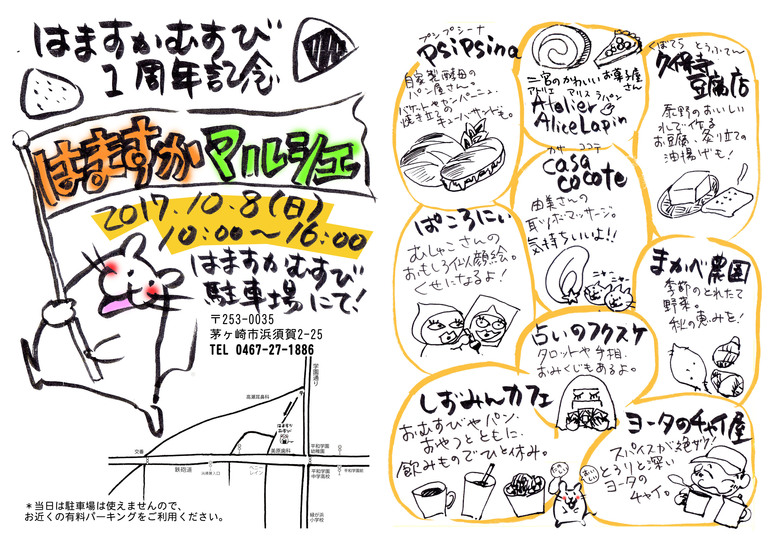 はますかむすび
1周年記念
はますかマルシェ
2017.10.8(日)
10:00〜16:00
はますかむすび
駐車場にて!
〒253-0035
茅ヶ崎市浜須賀2-25
TEL 0467-27-1886
学園通り
高瀬耳鼻科
はますか
むすび
美原歯科
平和学園
幼稚園
交番
鉄砲道
ペニー
レイン
平和学園
中学高校
平和学園前
緑が浜
小学校
*当日は駐車場は使えませんので、
お近くの有料パーキングをご利用ください。
プシプシーナ
PsiPsina
自家製酵母の
パン屋さん。
バゲットやカンパーニュ、
焼き立ての
チキンハンサンドも。
二宮のかわいいお菓子屋さん
アトリエ アリスラパン
Atelier
AliceLapin
くぼてら とうふてん
久保寺
豆腐店
秦野のおいしい
水で作る
お豆腐、炙り立ての
油揚げも!
カサ ココテ
casa
cocote
由美さんの
耳ツボマッサージ。
気持ちいいよ!!
ニャ ニャー
ぱころにい
むしゃこさんの
おもしろ似顔絵。
くせになるよ!
まかべ農園
季節のとれたて
野菜。
秋の恵みを!
占いのフクスケ
タロットや手相、
おみくじもあるよ。
しおみんカフェ
おむすびやパン、
おやつとともに
飲みものでひと休み。
ヨータのチャイ屋
スパイスが絶妙!
とろりと深い
ヨータの
チャイ。